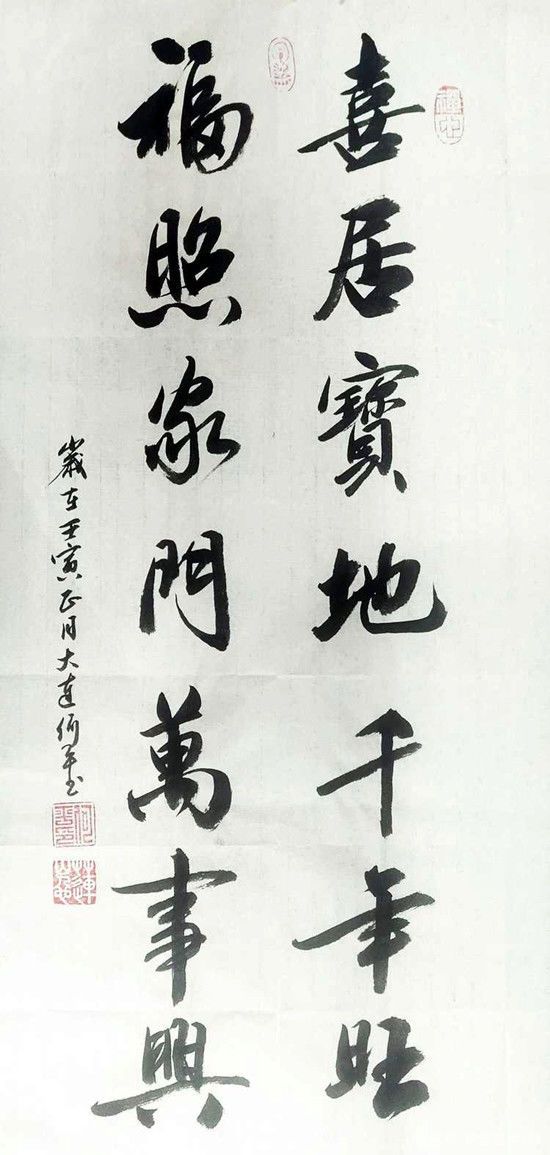 喜居寶地千年旺
福照家門萬事興
歲在壬寅正月大連